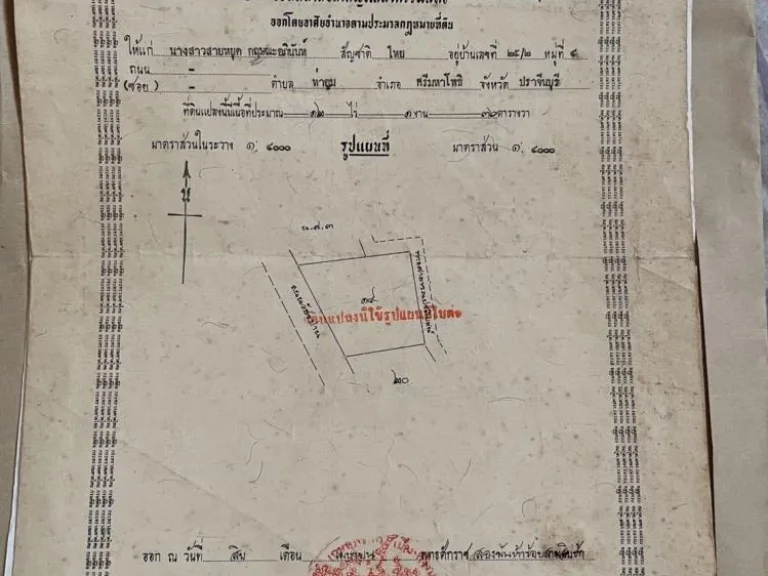 ออกโดยอาศัยอำนาจตามประมวลกฎหมายที่ดิน
ให้แก่ นางสาวสายหยุด สัญชาติ ไทย อยู่บ้านเลขที่ ๒๕/๒ หมู่ที่ ๘
ถนน -
(ซอย) - ตำบล ท่าตูม อำเภอ ศรีมหาโพธิ จังหวัด ปราจีนบุรี
ที่ดินแปลงนี้มีเนื้อที่ประมาณ ๑๒ ไร่ ๑ งาน ๓๒ ตารางวา
มาตราส่วนในระวาง ๑: ๔๐๐๐ รูปแผนที่ มาตราส่วน ๑: ๔๐๐๐
น
น.ส.๓
๑๙
ที่ดินแปลงนี้ใช้รูปแผนที่ใบต่อ
๒๐
ออก ณ วันที่ สิบ เดือน พุทธศักราช สองพันห้าร้อย